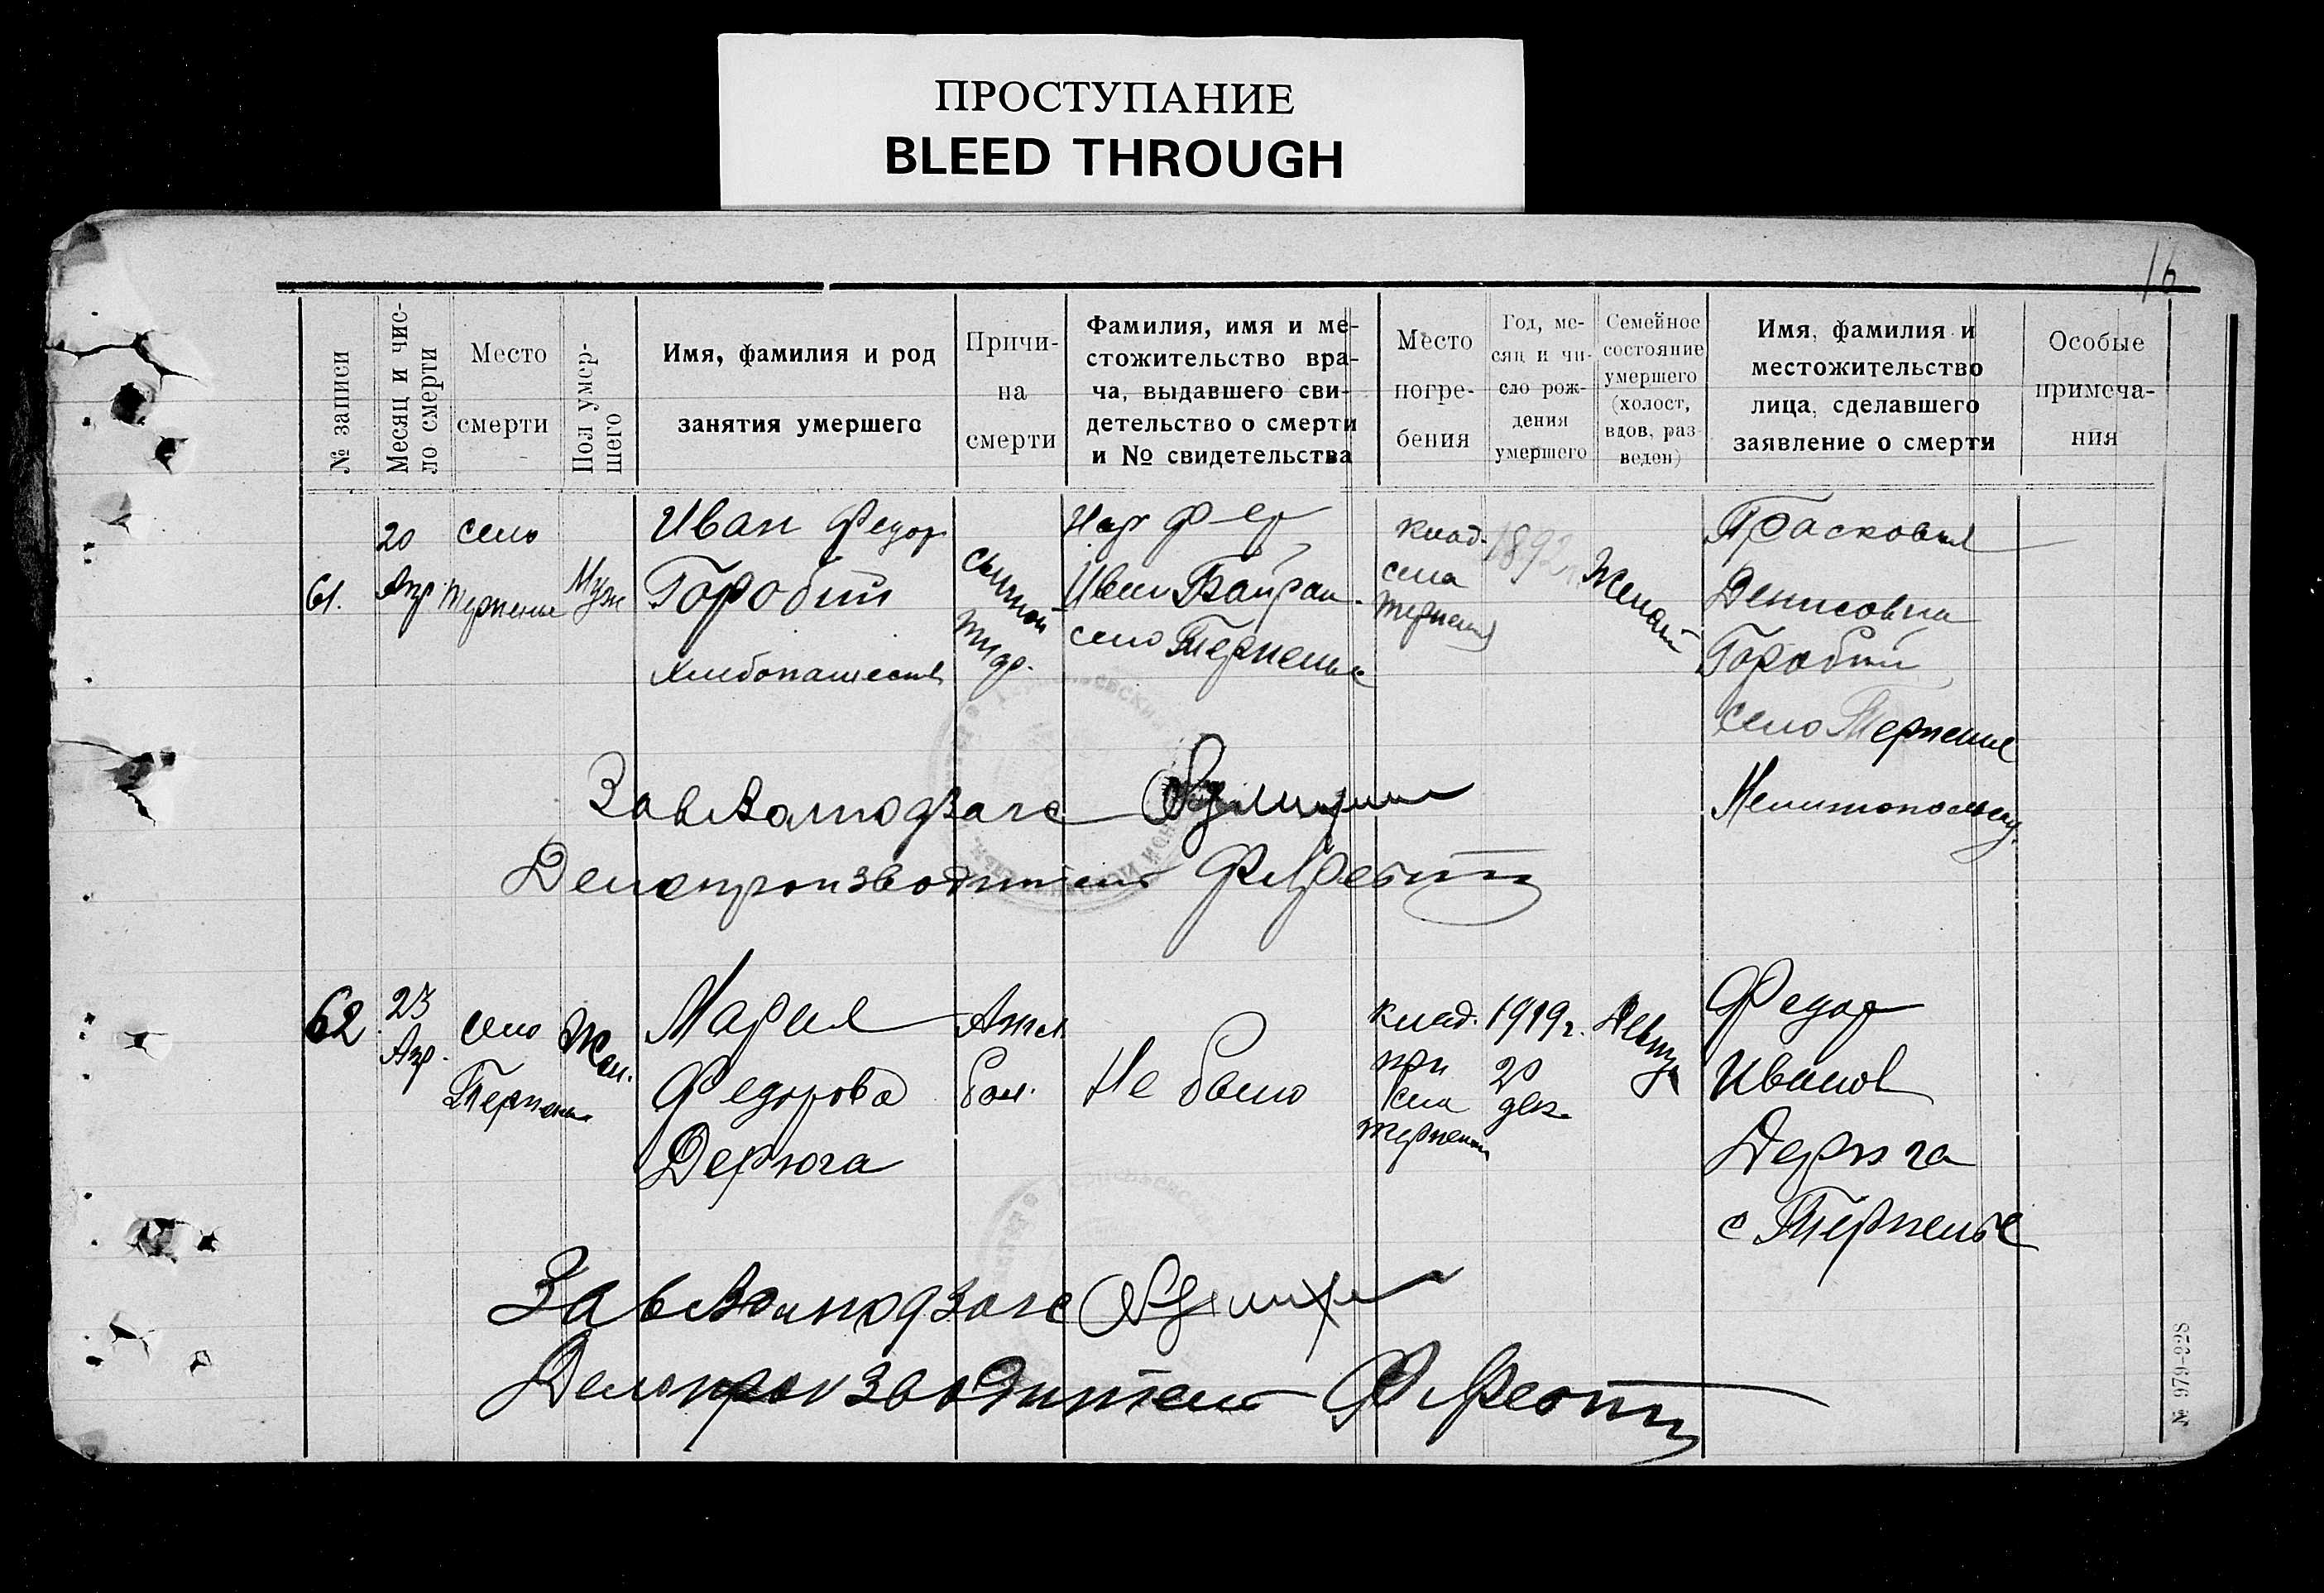 ПРОСТУПАНИЕ
BLEED THROUGH
16
№ записи
Месяц и чис-
ло смерти
Место
смерти
Пол умер-
шего
Имя, фамилия и род
занятия умершего
Причи-
на
смерти
Фамилия, имя и ме-
стожительство вра-
ча, выдавшего сви-
детельство о смерти
и № свидетельства
Место
погре-
бения
Год, ме-
сяц и чи-
сло рож-
дения
умершего
Семейное
состояние
умершего
(холост,
вдов, раз
веден)
Имя, фамилия и
местожительство
лица, сделавшего
заявление о смерти
Особые
примеча-
ния
61.
20
Апр
село
Терпение
Муж
Иван Федор
Горобий
сыпной
тиф.
Иван
село Терпенье
клад.
села
Терпения
1892
Женат
Прасковья
Денисовна
Горобий
село Терпение
Завволподзагс
Делопроизводитель
62
23
Апр.
село
Терпение
Жен.
Мария
Федорова
Дерюга
Не было
клад.
при
села
Терпения
1919г.
20
дек.
Федор
Иванов
Дерюга
с Терпенье
Завволподзагс
Делопроизводитель
№ 979-928